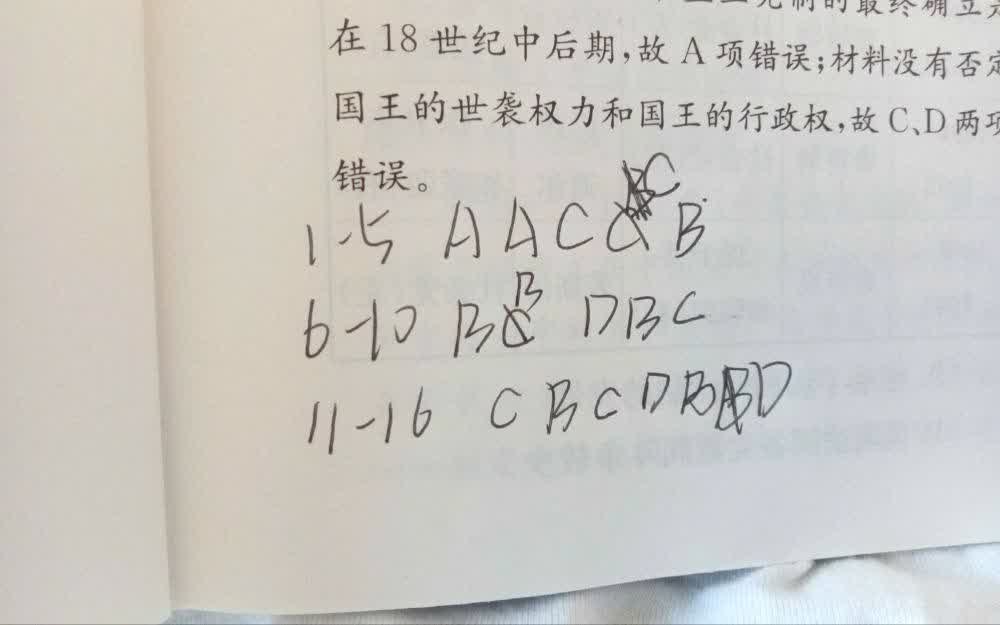 制的最终确立是
在18世纪中后期,故A项错误;材料没有否定
国王的世袭权力和国王的行政权,故C、D两项
错误。
C
1-5 A A C B
B
6-10 B C D B C
11-16 C B C D B D